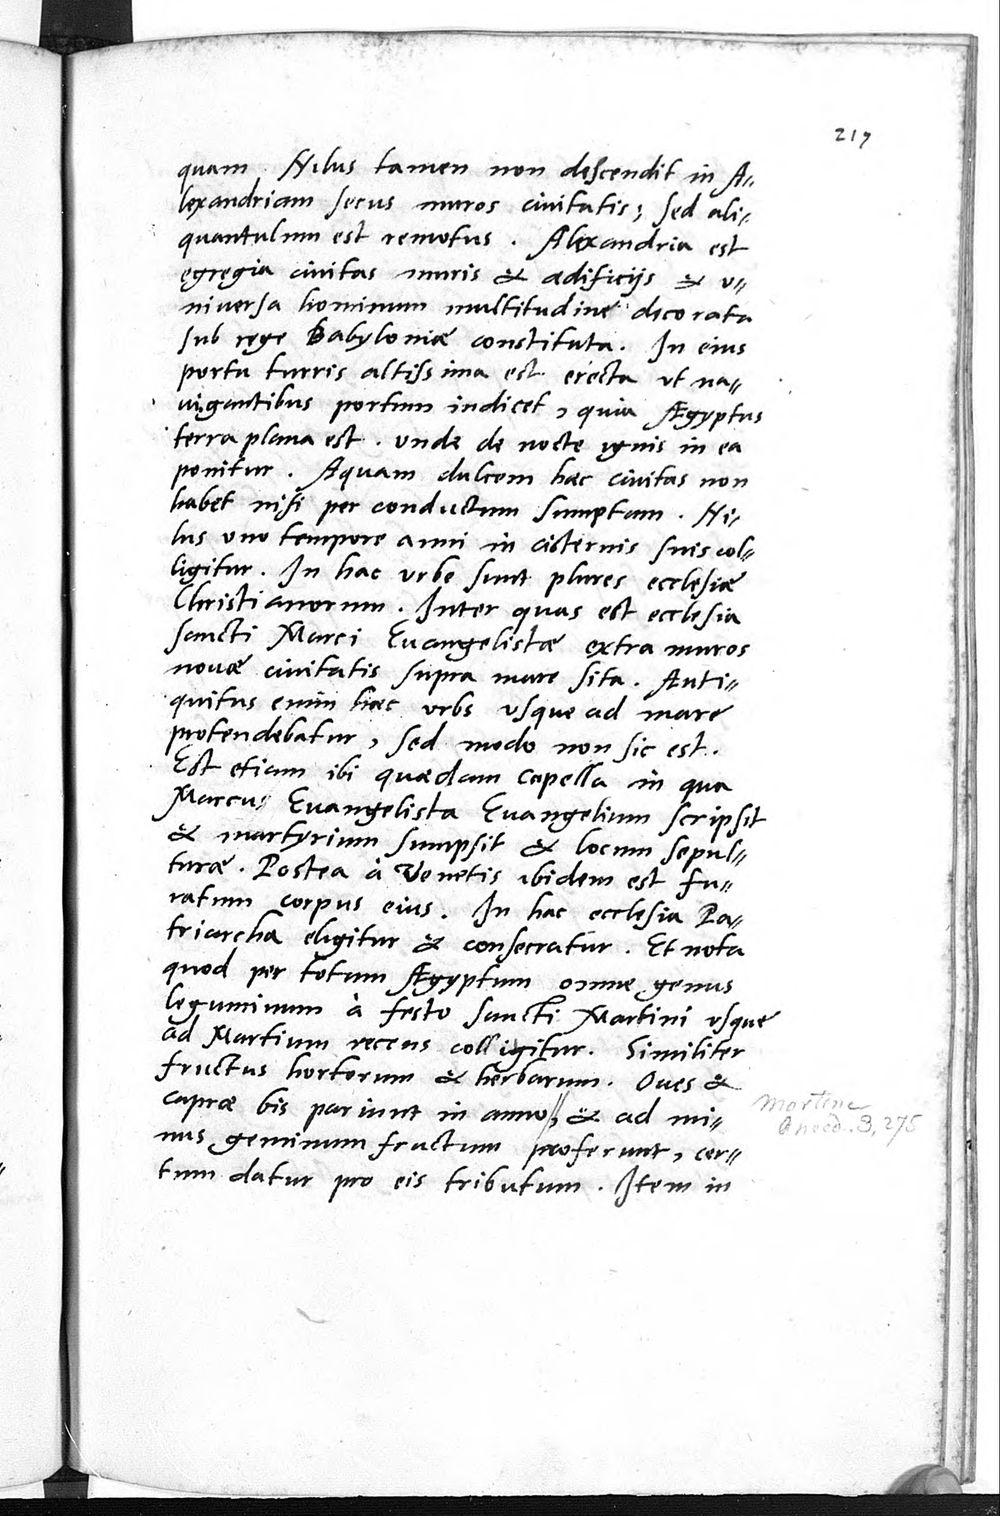 217
quam. Nilus tamen non descendit in A=
lexandriam secus muros ciuitatis; sed ali=
quantulum est remotus. Alexandria est
egregia ciuitas muris & ædificijs & v=
niuersa hominum multitudine decorata
sub rege Babyloniæ constituta. In eius
portu turris altissima est erecta vt na=
uigantibus portum indicet, quia Ægyptus
terra plana est. vnde de nocte ignis in ea
ponitur. Aquam dulcem hæc ciuitas non
habet nisi per conductum sumptam. Ni=
lus vno tempore anni in cisternis suis col=
ligitur. In hac vrbe sunt plures ecclesiæ
Christianorum. Inter quas est ecclesia
sancti Marci Euangelistæ extra muros
nouæ ciuitatis supra mare sita. Anti=
quitus enim hæc vrbs vsque ad mare
protendebatur, sed modo non sic est.
Est etiam ibi quædam capella in qua
Marcus Euangelista Euangelium scripsit
& martyrium sumpsit & locum sepul=
turæ. Postea à Venetis ibidem est fu=
ratum corpus eius. In hac ecclesia Pa=
triarcha eligitur & consecratur. Et nota
quod per totum Ægyptum omne genus
leguminum à festo sancti Martini vsque
ad Martium recens colligitur. Similiter
fructus hortorum & herbarum. Oues &
capræ bis pariunt in anno, & ad mi=
nus geminum fructum proferunt, cer=
tum datur pro eis tributum. Item in
Martene
Anecd. 3, 275